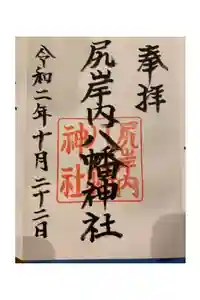 奉拝
尻岸内八幡神社
尻岸内
八幡
神社
令和二年十月二十二日